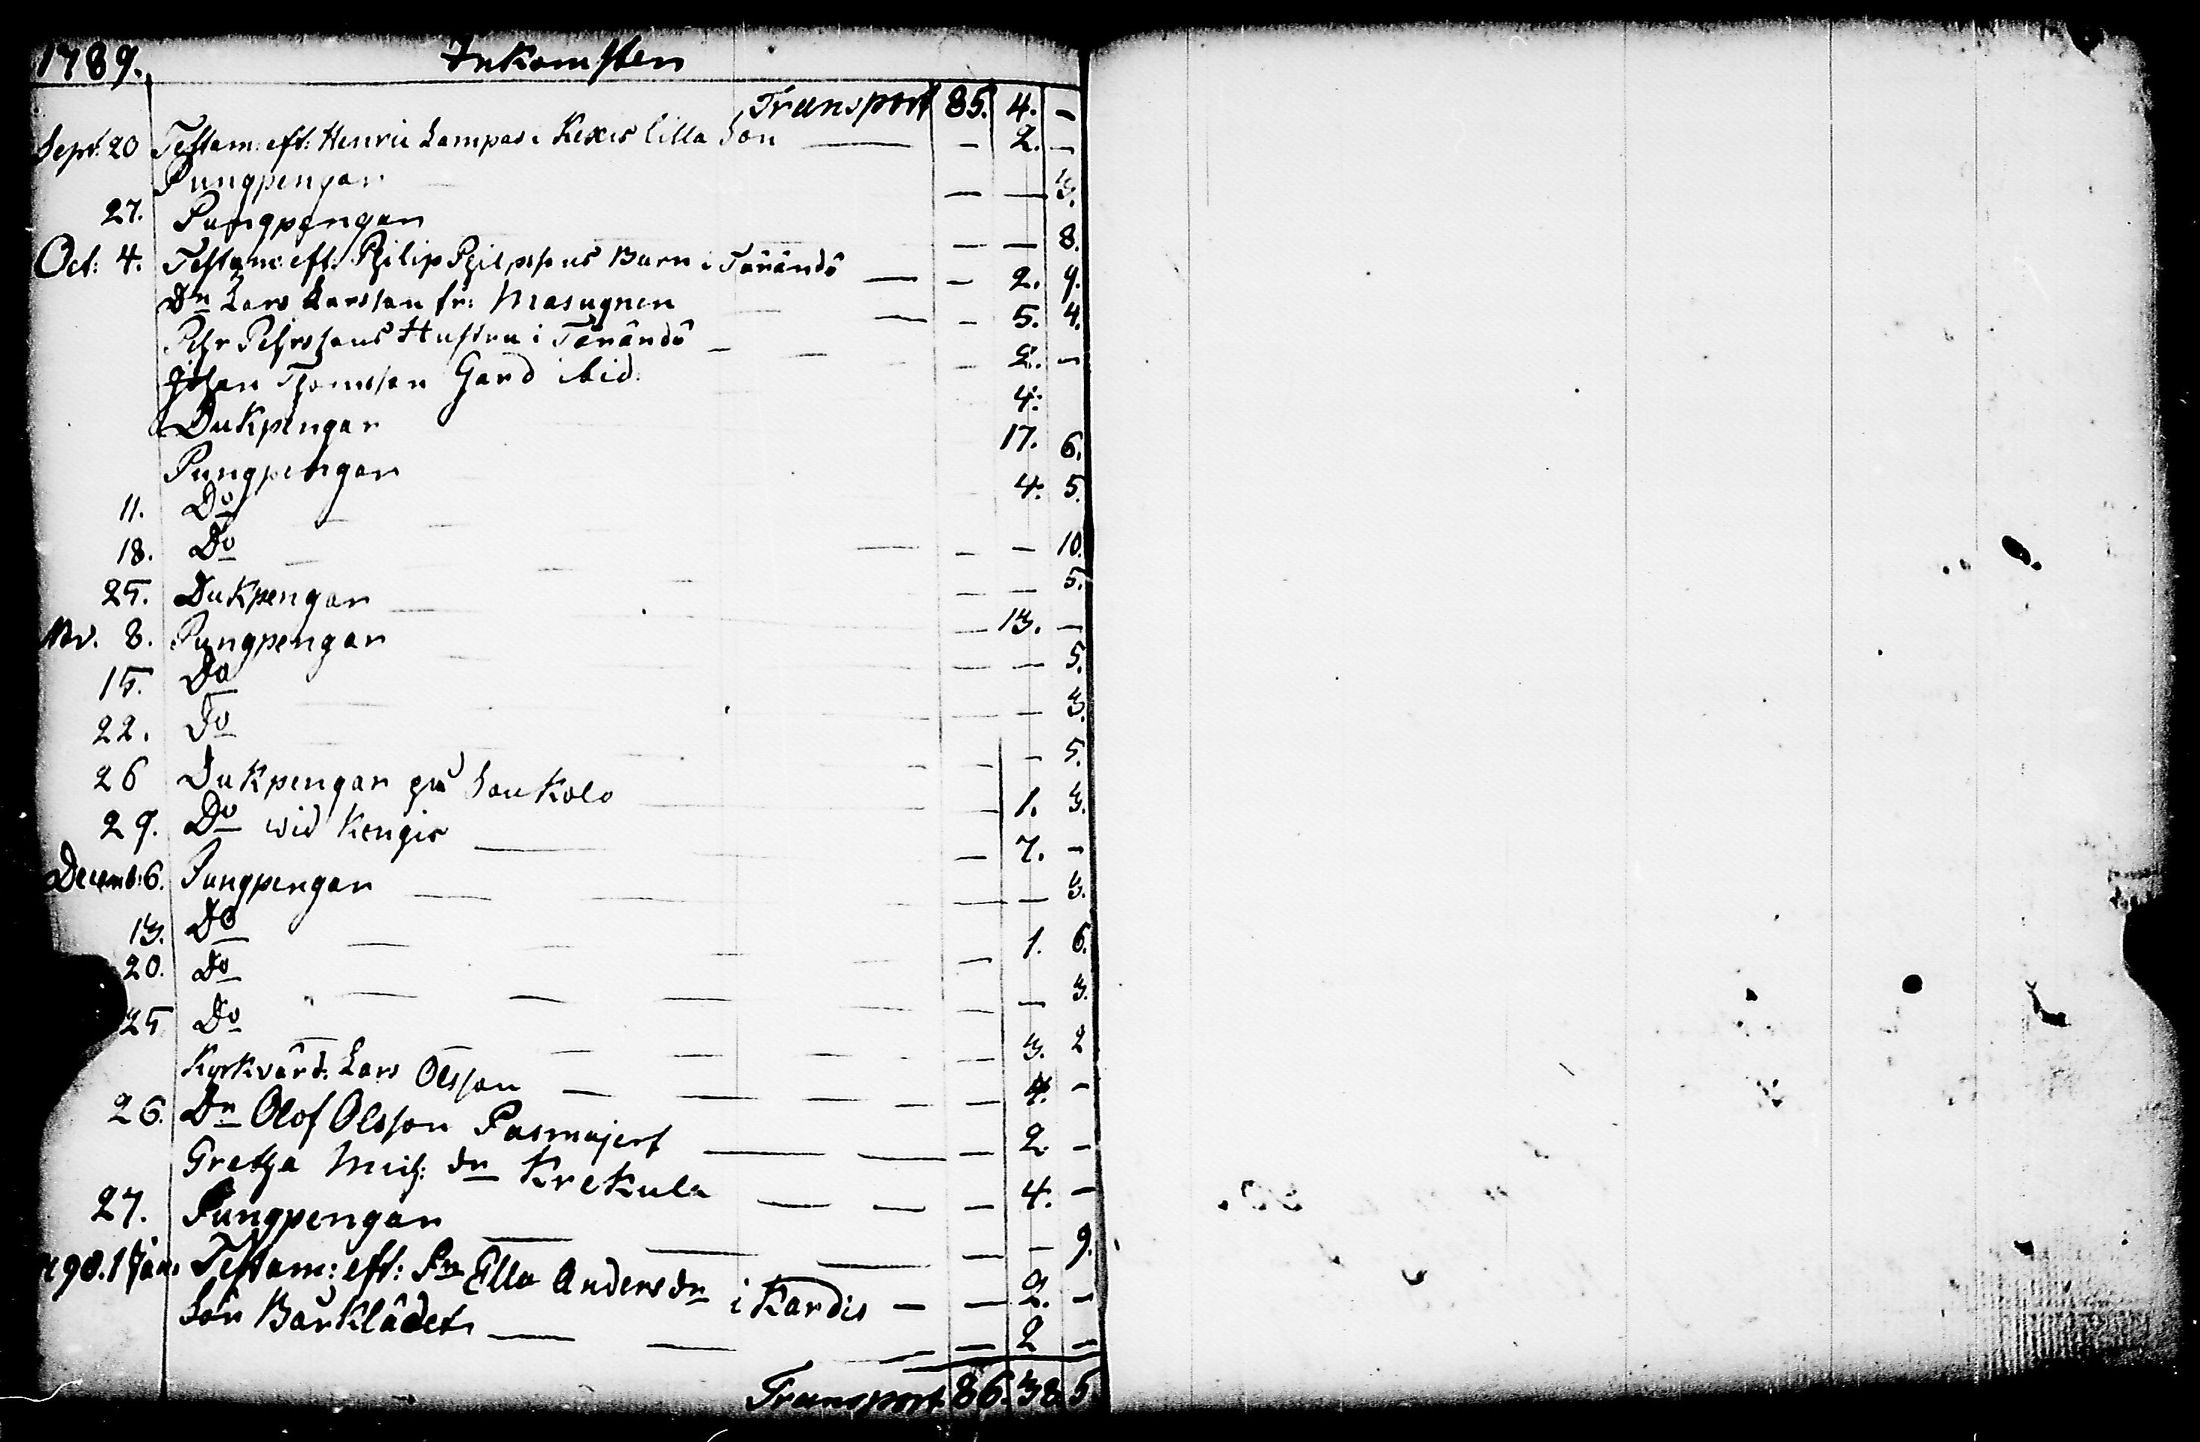 1789. Inkomsten
Transport 85. 4. –
Sept: 20 Testam: eft: Henric Lampas i Kexis lilla Son — – 2. –
Pungpengar – — 3.
27. Pungpengar – — 8.
Oct: 4. Testam: eft: Philip Philipssons Barn i Tärändö — – 2. 9.
Dn Lars Larsson fr: Masugnen — – 5. 4.
Pehr Pehrssons Hustru i Tärändö – – 2. –
Johan Thomsson Gard ibid: 4:
Dukpengar 17. 6.
Pungpengar 4: 5.
11. Do — – – 10.
18. Do – – 5.
25. Dukpengar – 13. –
Nov. 8. Pungpengar – – 5.
15. Do – – 3.
22. Do – – 5.
26 Dukpengar på Soukolo – 1. 3.
29. Do wid Kengis – 7. –
Decemb: 6. Pungpengar — – – 3.
13. Do – 1. 6.
20. Do – – 3.
25 Do – 3. 2
Kyrkvärd: Lars Olsson — – 4. –
26. Dn Olof Olsson Pasmajerf — – 2. –
Gretha Mich: dn Krekula — – 4. –
27. Pungpengar — – – 9.
1790. 1 Jan. Testam: eft: Ella Andersdn i Kardis – – 2. –
för Bårklädet — – 2 –
Transport 86. 38 5